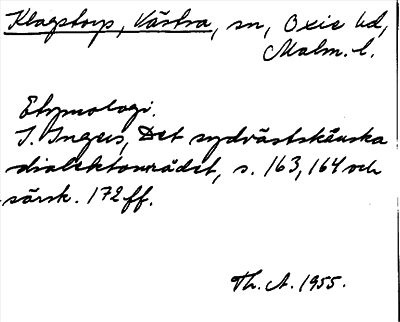 Klagstorp, Västra, sn, Oxie hd,
Malm. l.
Etymologi.
I. Ingers, Det sydvästskånska
dialektområdet, s. 163, 164 och
särsk. 172 ff.
Th. A. 1955.